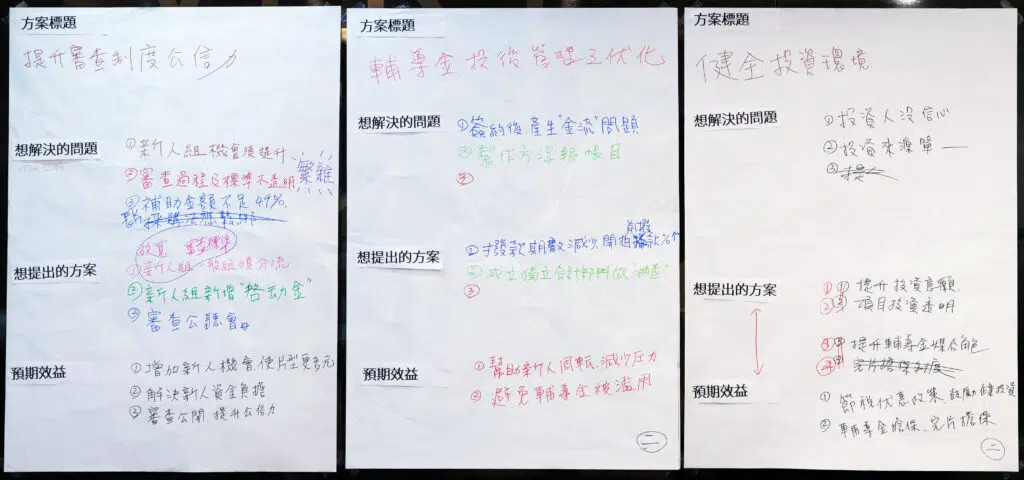 方案標題
提升審查制度公信力
想解決的問題
①新人組機會須提升
②審查過程及標準不透明
繁雜
③補助金額不足49%
想提出的方案
①新人組、一般組須分流
②新人組新增"啓动金"
③審查公聽會
預期效益
①增加新人機會,使片型更多元
②解決新人資金負擔
③審查公開,提升公信力
方案標題
輔導金投後管理之优化
想解決的問題
①簽約後,產生"金流"問題
②製作方浮報帳目
③
想提出的方案
①撥款期數減少,開拍前撥款%
②成立獨立会計部門做"抽查"
③
預期效益
①幫助新人周転,減少圧力
②避免輔導金被濫用
二
方案標題
健全投資環境
想解決的問題
①投資人沒信心
②投資來源單一
③
想提出的方案
① 提升投資意願
② 項目投資透明
③ 提升輔導金媒合角色
④ 完片擔保制度
預期效益
① 節稅优惠政策,鼓勵健投資
② 輔導金擔保、完片擔保
二